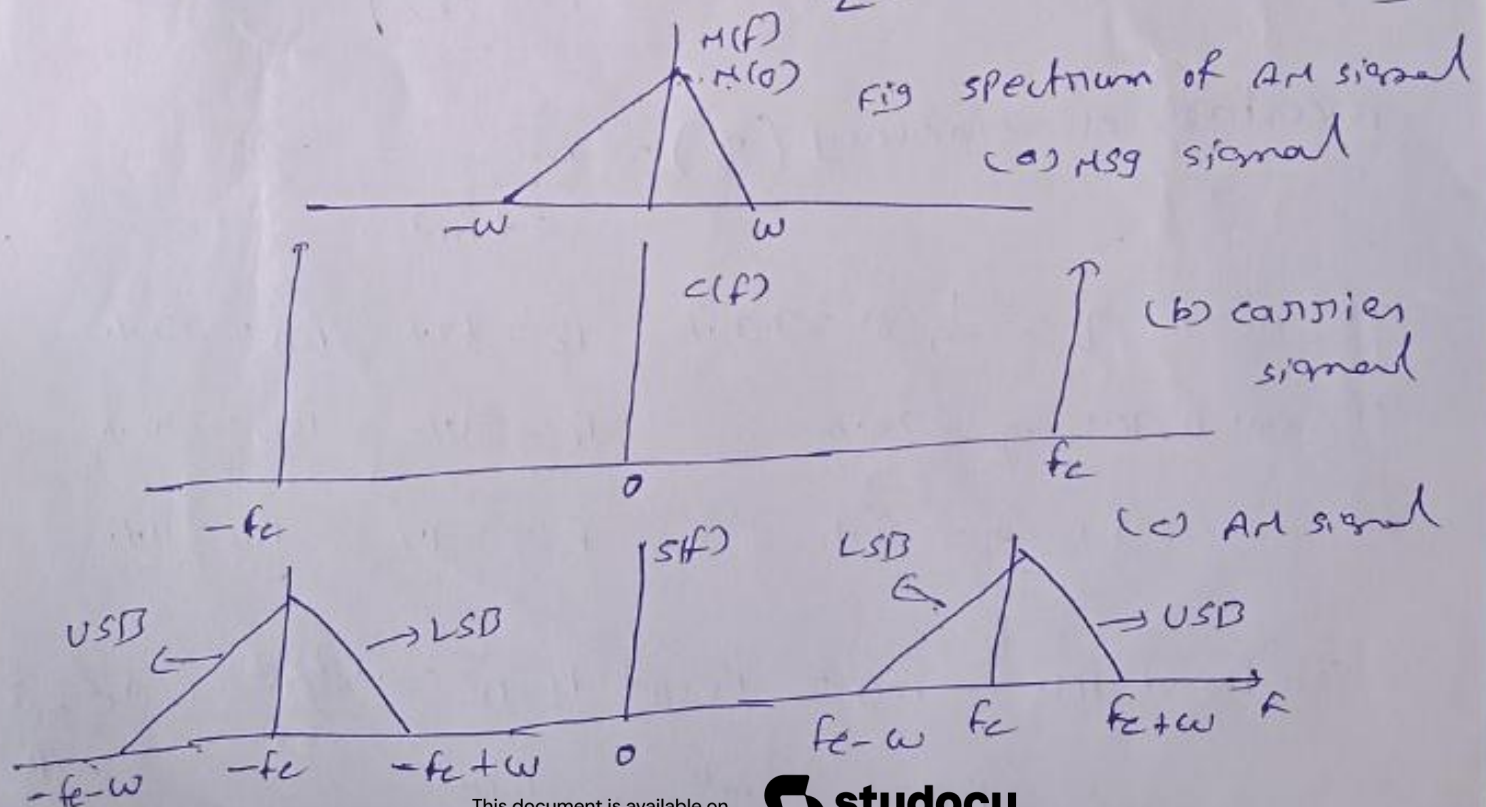 M(f)
M(0)
Fig spectrum of AM signal
(a) Msg signal
-w
w
C(f)
(b) carrier
signal
-fc
0
fc
(c) AM signal
S(f)
LSB
USB
LSB
USB
-fc-w
-fc
-fc+w
0
fc-w
fc
fc+w
f
This document is available on
studocu